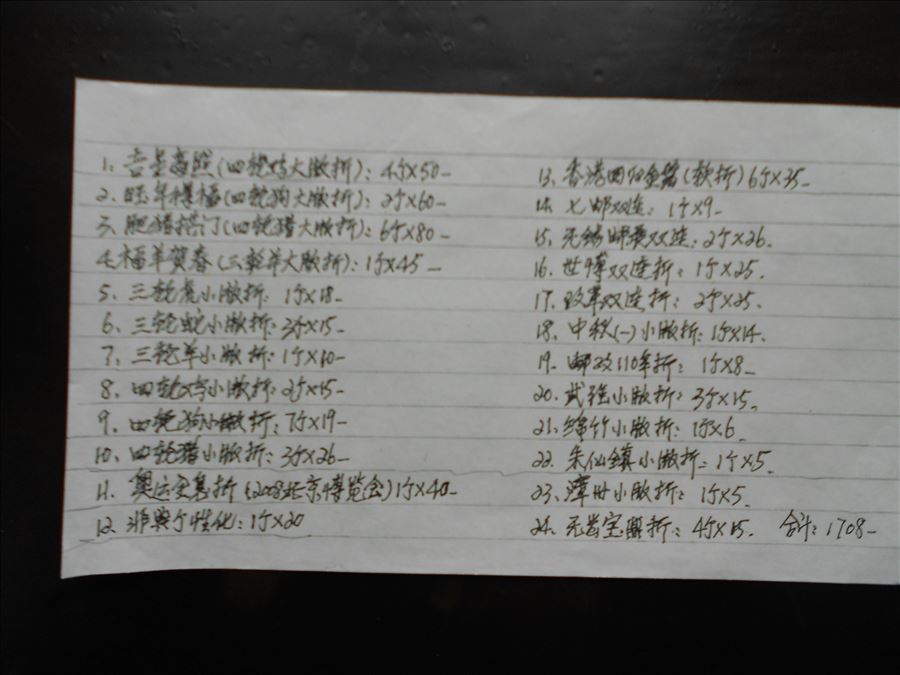 1、吉星高照(四轮鸡大版折)：4个×50-
2、旺年祥福(四轮狗大版折)：2个×60-
3、肥猪拱门(四轮猪大版折)：6个×80-
4、福羊贺春(三轮羊大版折)：1个×45-
5、三轮虎小版折：1个×18-
6、三轮蛇小版折：3个×15-
7、三轮羊小版折：1个×10-
8、四轮鸡小版折：2个×15-
9、四轮狗小版折：7个×19-
10、四轮猪小版折：3个×26-
11、奥运全息折(2008北京博览会)1个×40-
12、非典个性化：1个×20
13、香港回归金箔(软折)6个×35-
14、七邮双连：1个×9-
15、无锡邮票双连：2个×26.
16、世博双连折：1个×25.
17、改革双连折：2个×25.
18、中秋(一)小版折：1个×14-
19、邮政110年折：1个×8-
20、武强小版折：3个×15.
21、绵竹小版折：1个×6.
22、朱仙镇小版折：1个×5.
23、漳州小版折：1个×5.
24、无齿宝熊折：4个×15. 合计：1708-